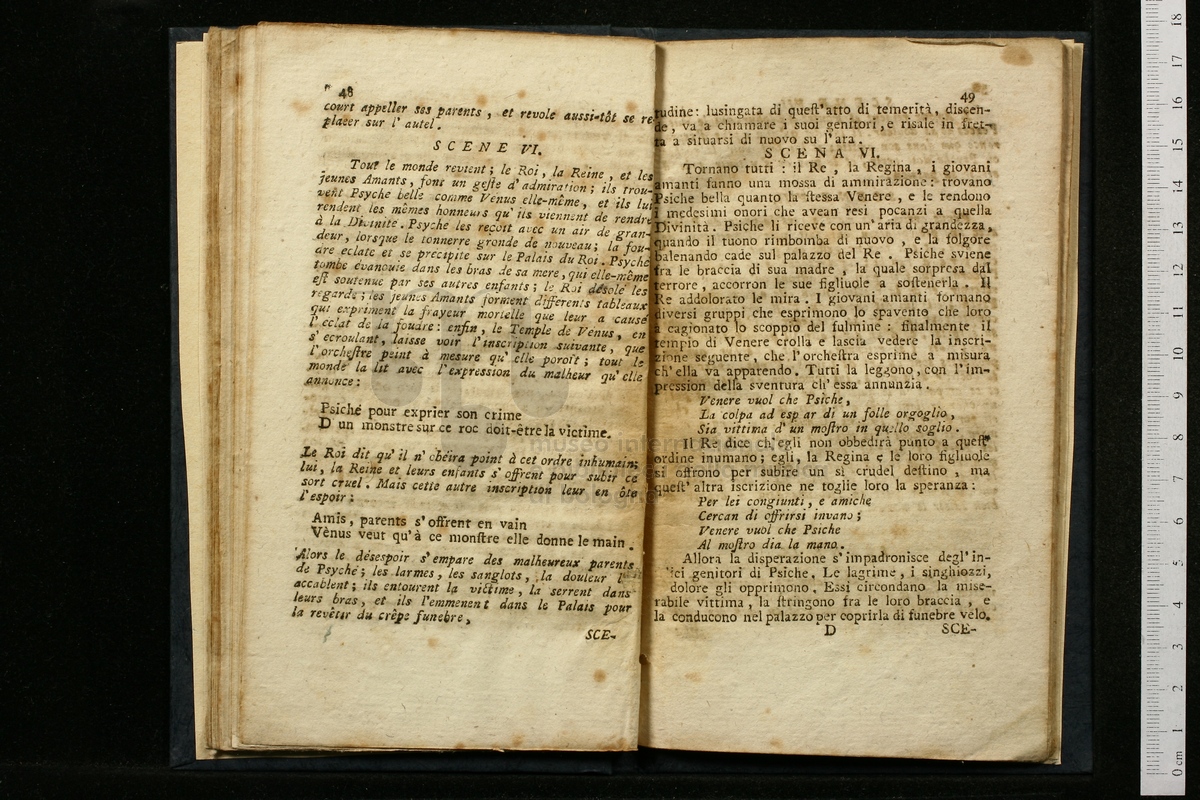 48
court appeller ses parents, et revole aussi-tôt se re-
placer sur l'autel.
SCENE VI.
Tout le monde revient; le Roi, la Reine, et les
jeunes Amants, font un geſte d'admiration; ils trou-
vent Psyché belle comme Vénus elle-même, et ils lui
rendent les mêmes honneurs qu'ils viennent de rendre
à la Divinité. Psyché les reçoit avec un air de gran-
deur, lorsque le tonnerre gronde de nouveau; la fou-
dre eclate et se precipite sur le Palais du Roi. Psyché
tombe évanouie dans les bras de sa mere, qui elle-même
eſt soutenue par ses autres enfants; le Roi désolé les
regarde; les jeunes Amants forment differents tableaux
qui expriment la frayeur mortelle que leur a causé
l'eclat de la foudre: enfin, le Temple de Venus, en
s'ecroulant, laisse voir l'inscription suivante, que
l'orcheſtre peint à mesure qu'elle poroît; tout le
monde la lit avec l'expression du malheur qu'elle
annonce:
Psiché pour exprier son crime
D'un monstre sur ce roc doit-être la victime.
Le Roi dit qu'il n'obéira point à cet ordre inhumain;
lui, la Reine et leurs enfants s'offrent pour subir ce
sort cruel. Mais cette autre inscription leur en ôte
l'espoir:
Amis, parents s'offrent en vain
Vènus veut qu'à ce monſtre elle donne le main.
Alors le désespoir s'empare des malheureux parents
de Psyché; les larmes, les sanglots, la douleur l
accablent; ils entourent la victime, la serrent dans
leurs bras, et ils l'emmenent dans le Palais pour
la revêtir du crêpe funebre,
SCE-
49
tudine: lusingata di queſt'atto di temerità, discen-
de, va a chiamare i suoi genitori, e risale in fret-
ta a situarsi di nuovo su l'ara.
SCENA VI.
Tornano tutti: il Re, la Regina, i giovani
amanti fanno una mossa di ammirazione: trovano
Psiche bella quanto la ſtessa Venere, e le rendono
i medesimi onori che avean resi pocanzi a quella
Divinità. Psiche li riceve con un'aria di grandezza,
quando il tuono rimbomba di nuovo, e la folgore
balenando cade sul palazzo del Re. Psiche sviene
fra le braccia di sua madre, la quale sorpresa dal
terrore, accorron le sue figliuole a soſtenerla. Il
Re addolorato le mira. I giovani amanti formano
diversi gruppi che esprimono lo spavento che loro
à cagionato lo scoppio del fulmine: finalmente il
tempio di Venere crolla e lascia vedere la inscri-
zione seguente, che l'orcheſtra esprime a misura
ch'ella va apparendo. Tutti la leggono, con l'im-
pression della sventura ch'essa annunzia.
Venere vuol che Psiche,
La colpa ad esp ar di un folle orgoglio,
Sia vittima d'un moſtro in quello soglio.
Il Re dice ch'egli non obbedirà punto a queſt'
ordine inumano; egli, la Regina e le loro figliuole
si offrono per subire un sì crudel deſtino, ma
queſt'altra iscrizione ne toglie loro la speranza:
Per lei congiunti, e amiche
Cercan di offrirsi invano;
Venere vuol che Psiche
Al moſtro dia la mano.
Allora la disperazione s'impadronisce degl'in-
'ici genitori di Psiche. Le lagrime, i singhiozzi,
dolore gli opprimono. Essi circondano la mise-
rabile vittima, la ſtringono fra le loro braccia, e
la conducono nel palazzo per coprirla di funebre velo.
D SCE-